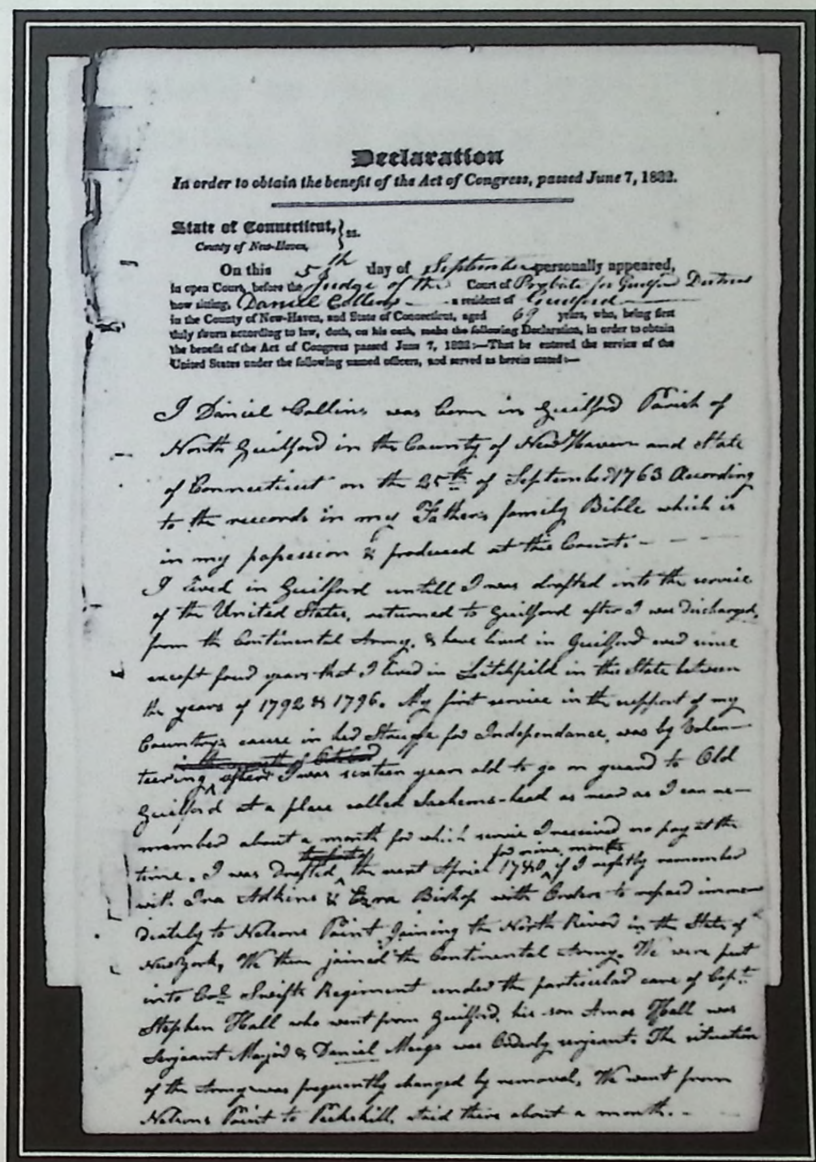 Declaration
In order to obtain the benefit of the Act of Congress, passed June 7, 1832.
State of Connecticut, } ss.
County of New-Haven,
On this 5th day of September personally appeared,
in open Court, before the Judge of the Court of Probate for Guilford District
now sitting, Daniel Collins a resident of Guilford
in the County of New-Haven, and State of Connecticut, aged 69 years, who, being first
duly sworn according to law, doth, on his oath, make the following Declaration, in order to obtain
the benefit of the Act of Congress passed June 7, 1832:—That he entered the service of the
United States under the following named officers, and served as herein stated:—
I Daniel Collins was born in Guilford Parish of
North Guilford in the County of New Haven and State
of Connecticut on the 25th of September 1763 According
to the records in my Father's family Bible which is
in my possession & produced at this Court. —
I lived in Guilford untill I was drafted into the service
of the United States, returned to Guilford after I was discharged,
from the Continental Army, & have lived in Guilford ever since
except four years that I lived in Litchfield in this State between
the years of 1792 & 1796. My first service in the support of my
Country's cause in her Struggle for Independance, was by Volun-
teering, after I was sixteen years old to go on guard to Old
Guilford at a place called Sachems-head as near as I can re-
member about a month for which service I received no pay at the
time. I was Drafted the next April 1780, for nine months if I rightly remember
with Ira Adkins & Ezra Bishop with Orders to repair imme-
diately to Nelsons Point joining the North River in the State of
New York, We then joined the Continental Army. We were put
into Col. Swifts Regiment under the particular care of Capt.
Stephen Hall who went from Guilford, his son Amos Hall was
Serjeant Major & Daniel Meigs was Orderly serjeant. The situation
of the Army was frequently changed by removal, We went from
Nelsons Point to Peekskill, staid there about a month. -